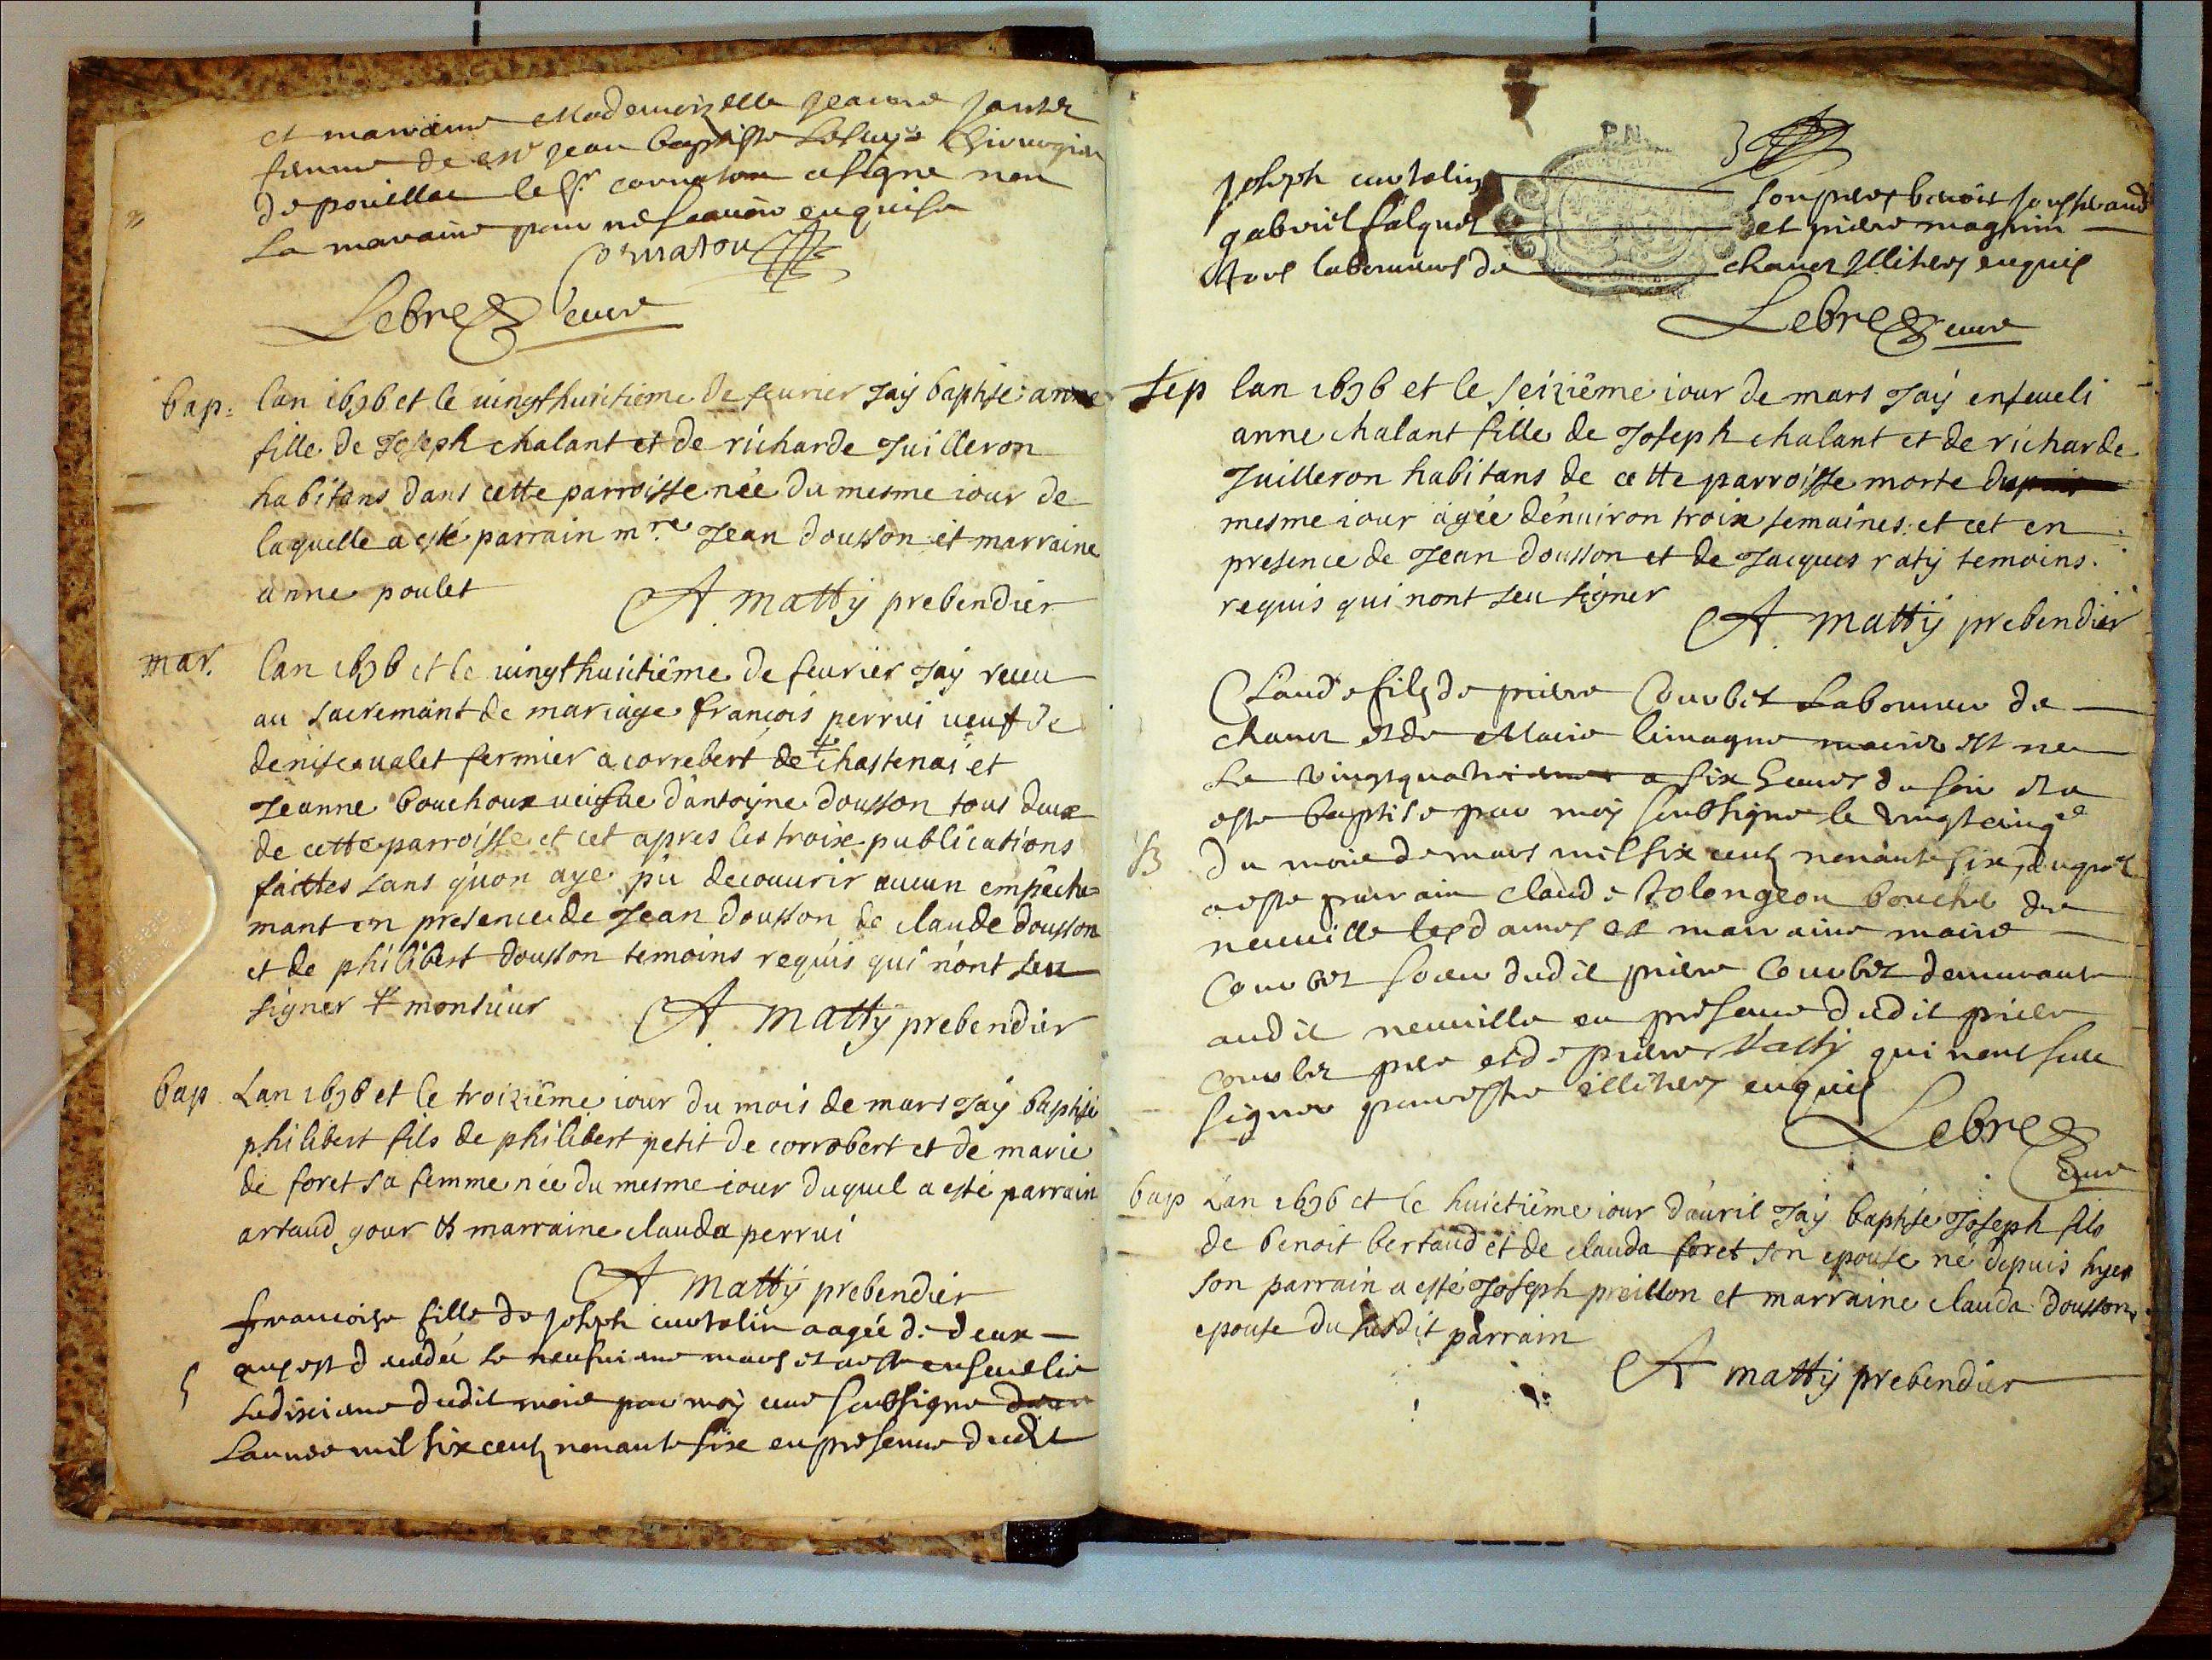 et maraine Mademoizelle Jeanne
femme de Mr Jean baptiste Chirurgien
de poüillac le Sr cornaton a signe non
la maraine pour ne scavoir enquise
Cornaton
Lebre cure
bap: lan 1696 et le uingthuictieme de feurier Jaÿ baptisé anne
fille de Joseph chalant et de richarde Juilleron
habitans dans cette parroisse née du mesme iour de
laquelle a esté parrain mre Jean dousson et marraine
anne poulet A. mattÿ prebendier
mar. lan 1696 et le uingthuictiême de feurier Jaÿ receu
au sacremant de mariage françois perrui ueuf de
denise ualet fermier a correbert de # chastenai et
Jeanne bouchoux ueufue dantoyne dousson tous deux
de cette parroisse et cet apres les troix publications
faittes sans quon aye pü decouurir aucun empêche=
mant en presence de Jean dousson de claude dousson
et de philibert dousson temoins requis qui nont seu
signer # monsieur A. mattÿ prebendier
bap Lan 1696 et le troiziême iour du mois de mars Jaÿ baptisé
philibert fils de philibert petit de corrobert et de marie
de foret sa femme née du mesme iour duquel a esté parrain
artaud gour et marraine clauda perrui
A mattÿ prebendier
francoise fille de Joseph curtelin aagée de deux
ans est decedée le neufuieme mars et a este enseuelie
S le dixieme dudit mois par moÿ cure soubsigne
Lannee mil six cents nonante six en presence dudit
P.N.
3
Joseph curtelin son pere benoit
gabriel falquet et piere magnin
tous laboureurs de chanoz Illiteres enquis
Lebre cure
sep lan 1696 et le seiziême iour de mars Jaÿ enseueli
anne chalant fille de Joseph chalant et de richarde
Juilleron habitans de cette parroisse morte du
mesme iour agée denuiron troix semaines et cet en
presence de Jean dousson et de Jacques ratÿ temoins
requis qui nont seu signer A. mattÿ prebendier
Claude fils de piere Courbet Laboureur de
chanoz et de Marie limagne maries est ne
Le vingtquatrieme a six heures du soir et a
este baptise par moÿ soubsigne le vingtcinqe
B du mois de mars mil six cents nonante six, duquel
a este parrain claude tolongeon bouche de
neuuille les dames et marraine marie
Courbet soeur dudit piere Courbet demeurante
audit neuuille en presence dudit piere
Courbet pere et de piere qui nont sceu
signer pour estre illiteres enquis
Lebre
cure
bap Lan 1696 et le huictiême iour dauril Jaÿ baptisé Joseph fils
de benoit bertaud et de clauda foret son epouse né depuis hyer
son parrain a esté Joseph preillon et marraine clauda dousson
epouse du susdit parrain
A mattÿ prebendier